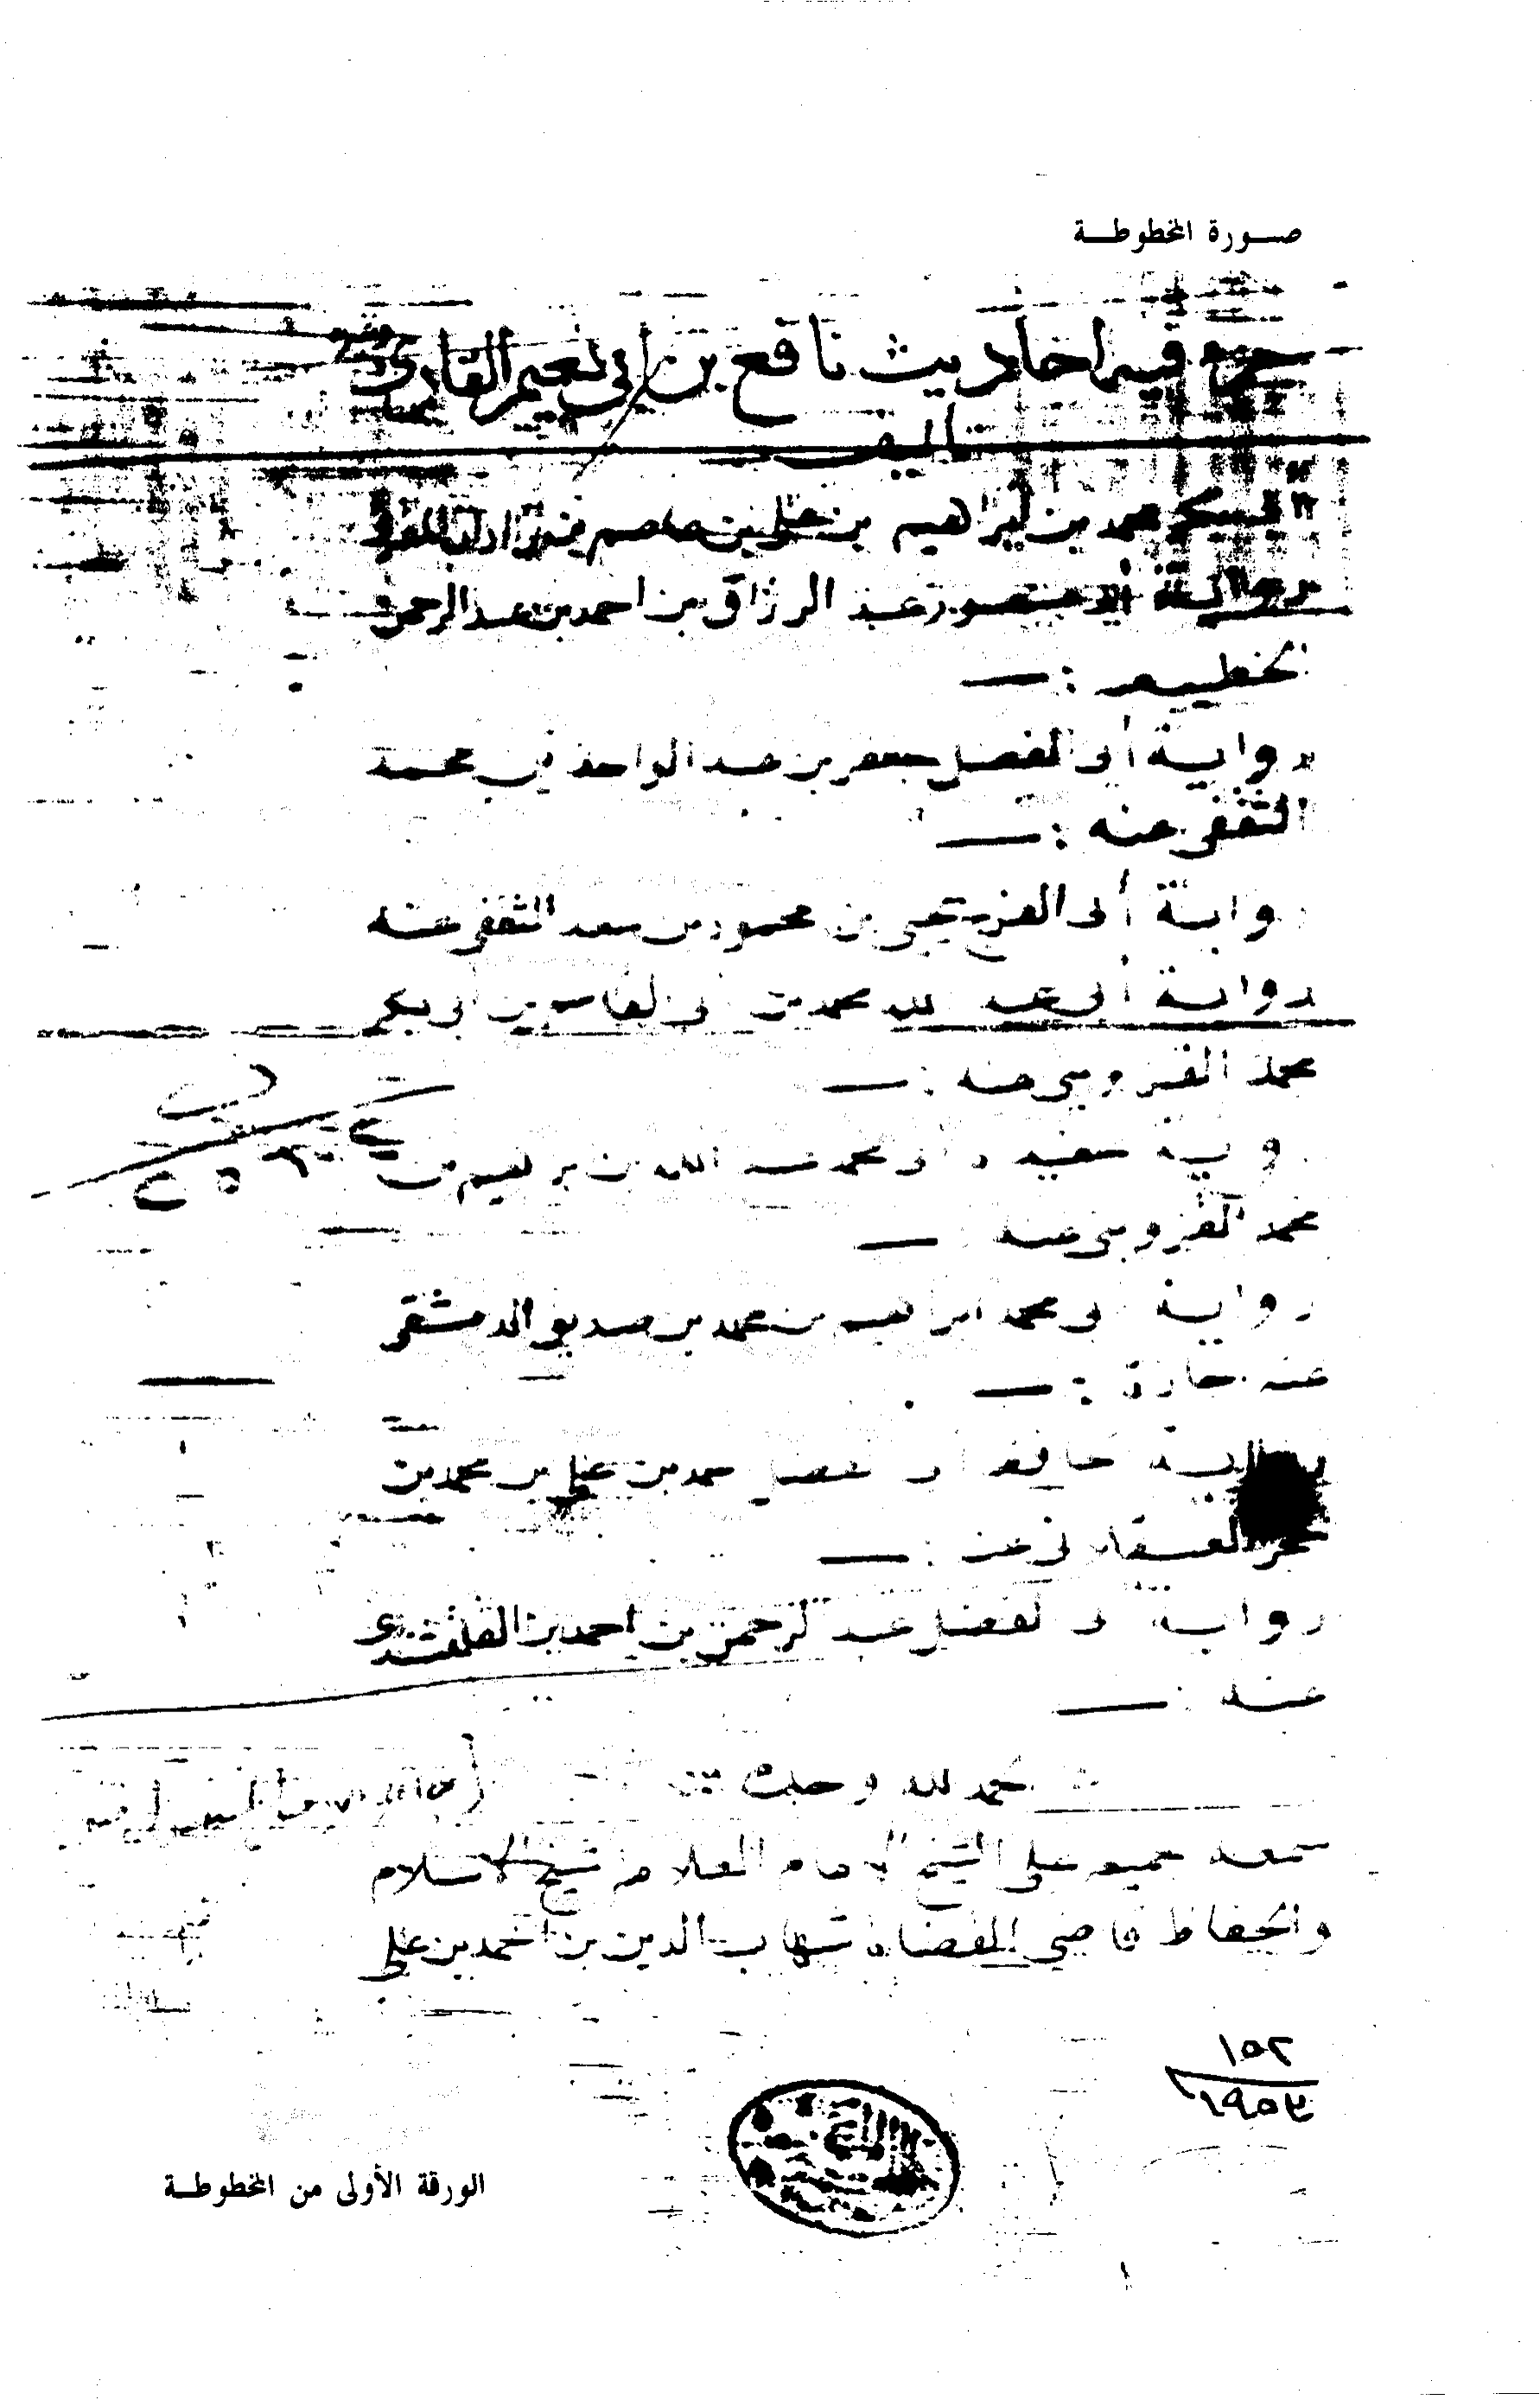 صورة المخطوطة
جزء فيه احاديث نافع بن أبي نعيم القارئ
تاليف
أبي بكر محمد بن إبراهيم بن علي بن عاصم بن زاذان المقرئ
رواية أبي منصور عبد الرزاق بن احمد بن عبد الرحمن
الخطيب :
رواية أبي الفضل جعفر بن عبد الواحد بن محمد
الثقفي عنه :
رواية أبي الفرج يحيى بن محمود بن سعد الثقفي عنه
رواية أبي عبد الله محمد بن أبي القاسم بن أبي بكر
محمد القزويني عنه :
رواية أبي محمد عبد الله بن إبراهيم بن
محمد القزويني عنه
رواية أبي محمد ابراهيم بن محمد بن صديق الدمشقي
عنه اجازة :
رواية الحافظ أبي الفضل احمد بن علي بن محمد بن
حجر العسقلاني عنه :
رواية أبي الفضل عبد الرحمن بن احمد بن القلقشندي
عنه :
الحمد لله وحده
سمعه جميعه على الشيخ الامام العلامة شيخ الاسلام
والحفاظ قاضي القضاة شهاب الدين بن احمد بن علي
١٥٢
١٩٥٣
الورقة الأولى من المخطوطة